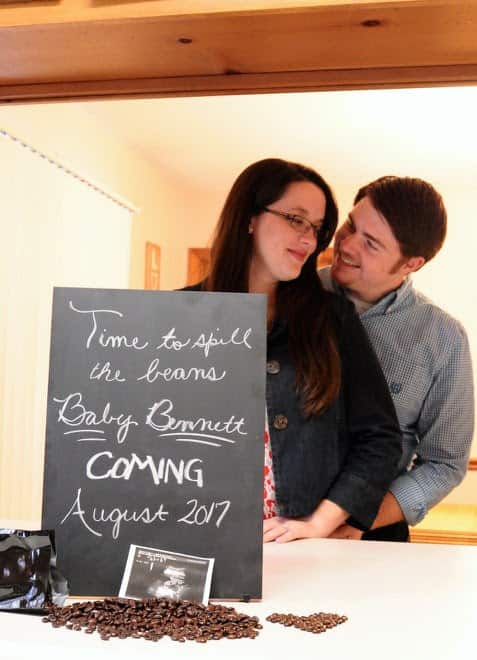 Time to spill
the beans
Baby Bennett
COMING
August 2017